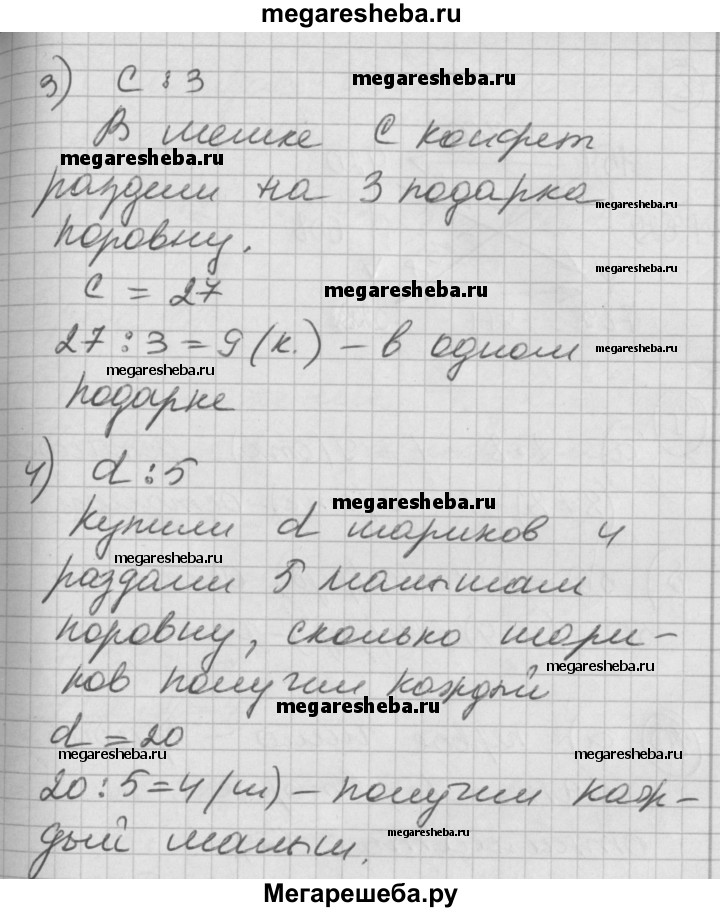 megaresheba.ru
3) C : 3
megaresheba.ru
В мешке C конфет
megaresheba.ru
раздели на 3 подарка
megaresheba.ru
поровну.
megaresheba.ru
C = 27
megaresheba.ru
27 : 3 = 9 (к.) – в одном
megaresheba.ru
megaresheba.ru
подарке
4) d : 5
megaresheba.ru
Купили d шариков и
megaresheba.ru
раздали 5 малышам
поровну, сколько шари-
megaresheba.ru
ков получил каждый
megaresheba.ru
d = 20
megaresheba.ru
megaresheba.ru
20 : 5 = 4 (ш) – получил каж-
megaresheba.ru
дый малыш.
Мегарешеба.ру